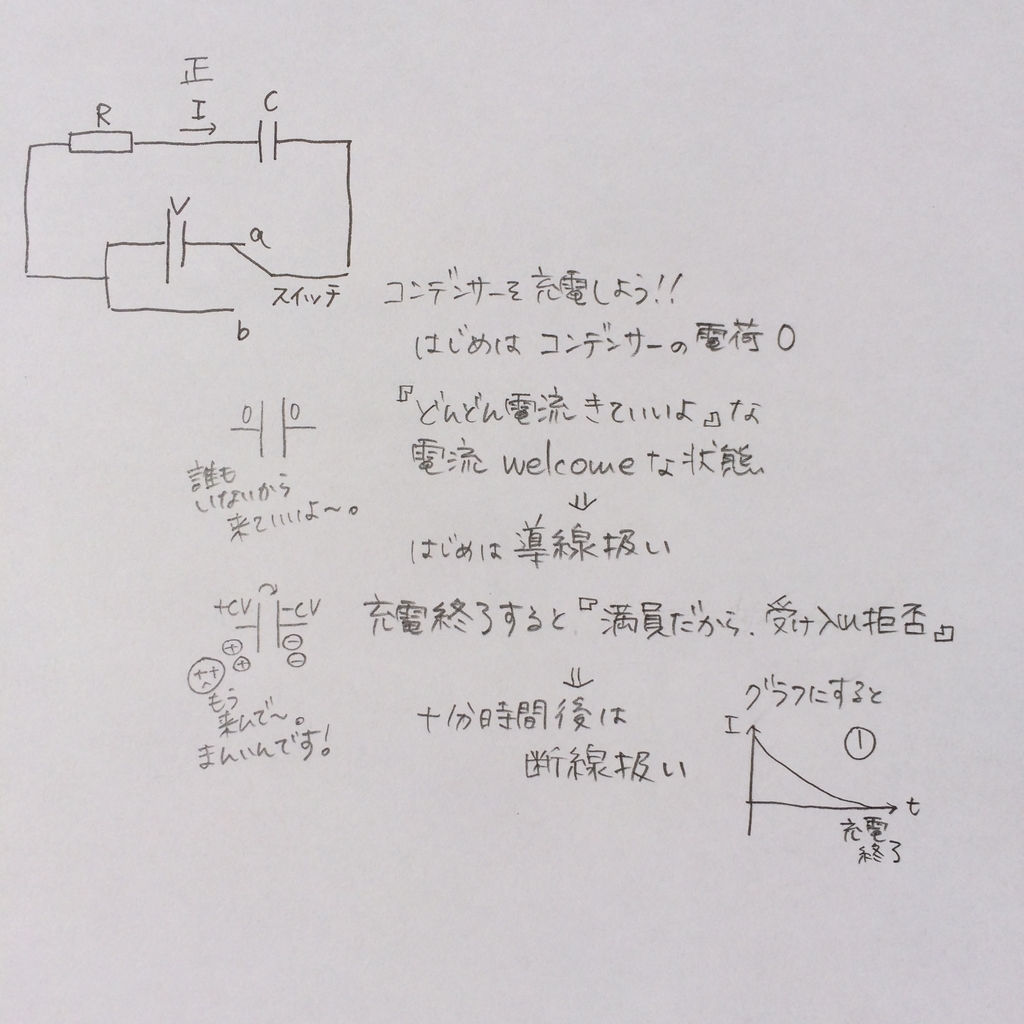 正
R
I
C
V
a
スイッチ
b
コンデンサーを充電しよう!!
はじめは コンデンサーの電荷0
0 0
『どんどん電流きていいよ』な
電流welcomeな状態
誰も
いないから
来ていいよ〜。
⇓
はじめは導線扱い
+CV -CV
充電終了すると『満員だから、受け入れ拒否』
⊕ ⊖
⊕ ⊖
++
もう
来んで〜。
まんいんです!
⇓
十分時間後は
断線扱い
グラフにすると
I
①
t
充電
終了